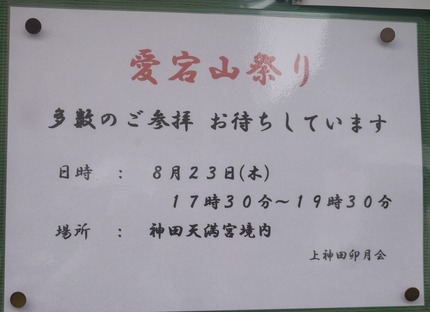 愛宕山祭り
多数のご参拝 お待ちしています
日時 : 8月23日(木)
17時30分~19時30分
場所 : 神田天満宮境内
上神田卯月会